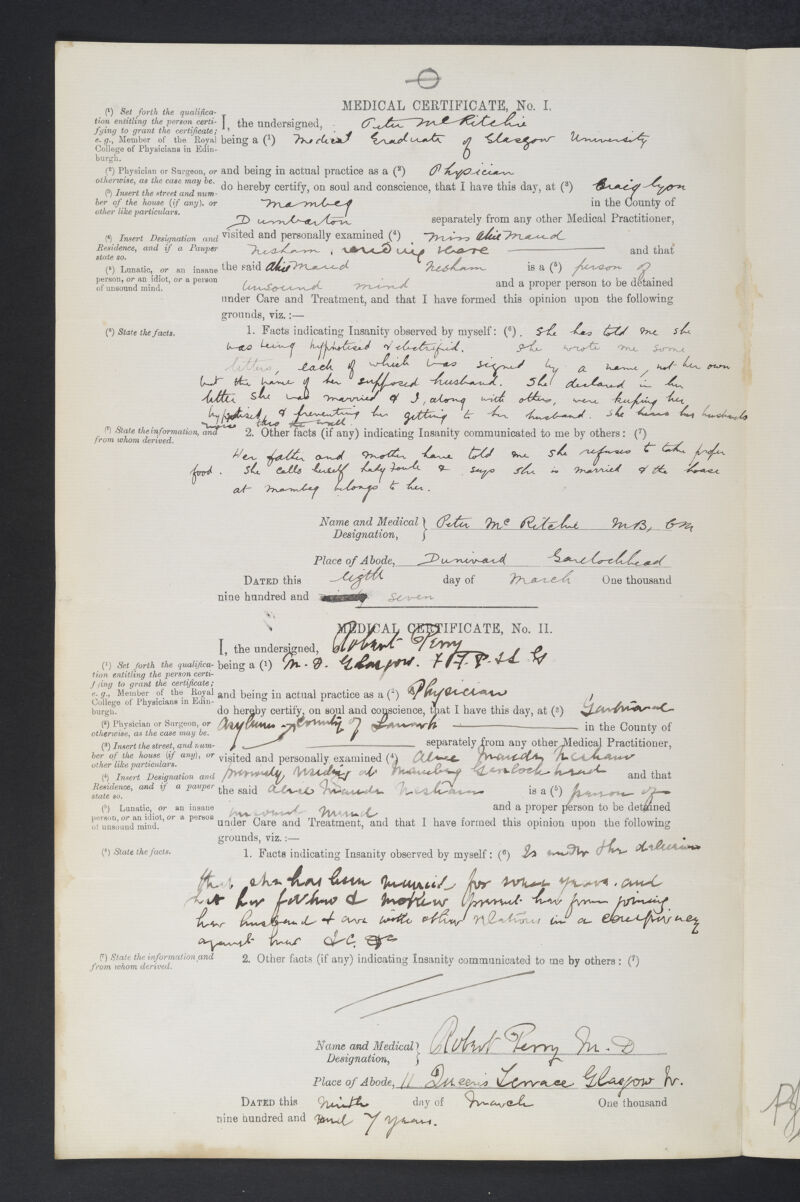 MEDICAL CERTIFICATE, No. I.
(¹) Set forth the qualifica-
tion entitling the person certi-
fying to grant the certificate;
e. g., Member of the Royal
College of Physicians in Edin-
burgh.
I, the undersigned, Peter McRitchie
being a (¹) Medical Graduate of Glasgow University
(²) Physician or Surgeon, or
otherwise, as the case may be.
and being in actual practice as a (²) Physician
(³) Insert the street and num-
ber of the house (if any), or
other like particulars.
do hereby certify, on soul and conscience, that I have this day, at (³) Craiglyon
Mambeg in the County of
Dumbarton separately from any other Medical Practitioner,
(⁴) Insert Designation and
Residence, and if a Pauper
state so.
visited and personally examined (⁴) Miss Alice Maud
Nesham, residing there and that
(⁵) Lunatic, or an insane
person, or an idiot, or a person
of unsound mind.
the said Alice Maud Nesham is a (⁵) person of
unsound mind and a proper person to be detained
under Care and Treatment, and that I have formed this opinion upon the following
grounds, viz.:—
(⁶) State the facts.
1. Facts indicating Insanity observed by myself: (⁶). She has told me she
was being hypnotised & electrified. She wrote me some
letters, each of which was signed by a name, not her own
but the name of her supposed husband. She declared in her
letter she was married & I, along with others, were keeping her
hypnotised, & preventing her getting to her husband. She hears her husband's
voice thro the wall
(⁷) State the information, and
from whom derived.
2. Other facts (if any) indicating Insanity communicated to me by others: (⁷)
Her father and mother have told me she refuses to take proper
food. She calls herself Lady & says she is married & the house
at Mambeg belongs to her.
Name and Medical Designation, Peter McRitchie MB, CM
Place of Abode, Dunivard Garelochhead
DATED this eigth day of March One thousand
nine hundred and seven
MEDICAL CERTIFICATE, No. II.
I, the undersigned, Robert Perry
(¹) Set forth the qualifica-
tion entitling the person certi-
fying to grant the certificate;
e. g., Member of the Royal
College of Physicians in Edin-
burgh.
being a (¹) M. D. Glasgow. F.F.P.S G
and being in actual practice as a (²) Physician
(²) Physician or Surgeon, or
otherwise, as the case may be.
do hereby certify, on soul and conscience, that I have this day, at (³) Gartnavel
Asylum County of Lanark in the County of
(³) Insert the street, and num-
ber of the house (if any), or
other like particulars.
separately from any other Medical Practitioner,
(⁴) Insert Designation and
Residence, and if a pauper
state so.
visited and personally examined (⁴) Alice Maude Nesham
residing at Mambeg Garelochhead and that
the said Alice Maude Nesham is a (⁵) person of
(⁵) Lunatic, or an insane
person, or an idiot, or a person
of unsound mind.
unsound mind and a proper person to be detained
under Care and Treatment, and that I have formed this opinion upon the following
grounds, viz.:—
(⁶) State the facts.
1. Facts indicating Insanity observed by myself: (⁶) Is under the delusion
that she has been married for some years and
that her father & mother prevent her from joining
her husband & are with other relations in a conspiracy
against her &c. &c
(⁷) State the information, and
from whom derived.
2. Other facts (if any) indicating Insanity communicated to me by others: (⁷)
Name and Medical Designation, Robert Perry M. D
Place of Abode, 11 Queens Terrace Glasgow W.
DATED this ninth day of March One thousand
nine hundred and and 7 years.